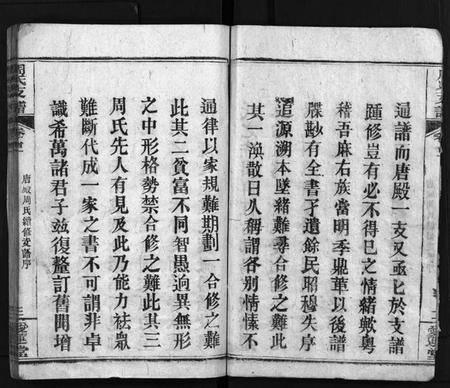 通譜而唐殿一支又亟亟於支譜
踵修豈有必不得已之情緒歟粵
稽吾麻右族當明季鼎革以後譜
牒尠有全書孑遺餘民昭穆失序
追源溯本墜緒難尋合修之難此
其一渙散日久稱謂各別情愫不
通律以家規難期劃一合修之難
此其二貧富不同智愚逈異無形
之中形格勢禁合修之難此其三
周氏先人有見及此乃能力祛眾
難斷代成一家之書不可謂非卓
識希萬諸君子玆復釐訂舊聞增
唐殿周氏續修支譜序
周氏支譜
三
愛蓮堂